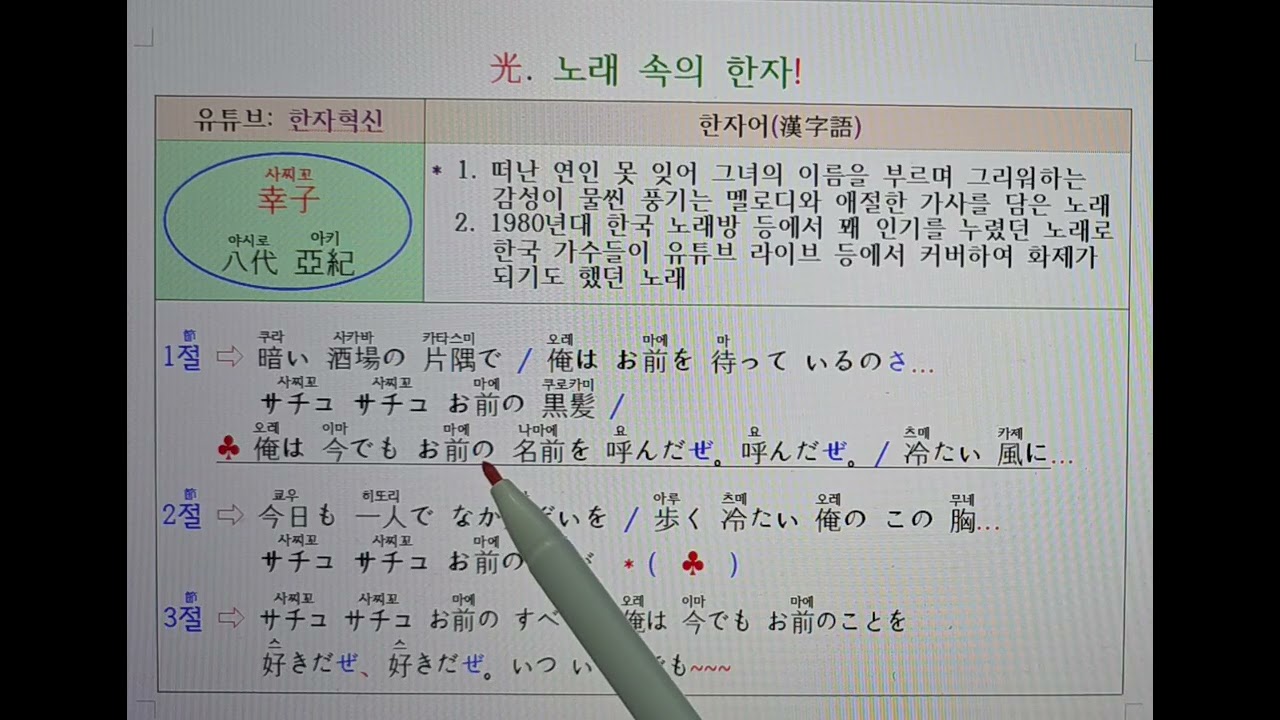 光. 노래 속의 한자!
유튜브: 한자혁신
한자어(漢字語)
사찌꼬
幸子
야시로 아키
八代 亞紀
* 1. 떠난 연인 못 잊어 그녀의 이름을 부르며 그리워하는
감성이 물씬 풍기는 멜로디와 애절한 가사를 담은 노래
2. 1980년대 한국 노래방 등에서 꽤 인기를 누렸던 노래로
한국 가수들이 유튜브 라이브 등에서 커버하여 화제가
되기도 했던 노래
節 쿠라 사카바 카타스미 오레 마에 마
1절 ⇨ 暗い 酒場の 片隅で / 俺は お前を 待って いるのさ...
사찌꼬 사찌꼬 마에 쿠로카미
サチコ サチコ お前の 黒髪 /
오레 이마 마에 나마에 요 요 츠메 카제
♣ 俺は 今でも お前の 名前を 呼んだぜ。呼んだぜ。/ 冷たい 風に...
節 쿄우 히또리 아루 츠메 오레 무네
2절 ⇨ 今日も 一人で なか ぞいを / 歩く 冷たい 俺の この 胸...
사찌꼬 사찌꼬 마에
サチコ サチコ お前の が *( ♣ )
節 사찌꼬 사찌꼬 마에 오레 이마 마에
3절 ⇨ サチコ サチコ お前の すべ 俺は 今でも お前のことを
스 스
好きだぜ、好きだぜ。いつ い でも~~~